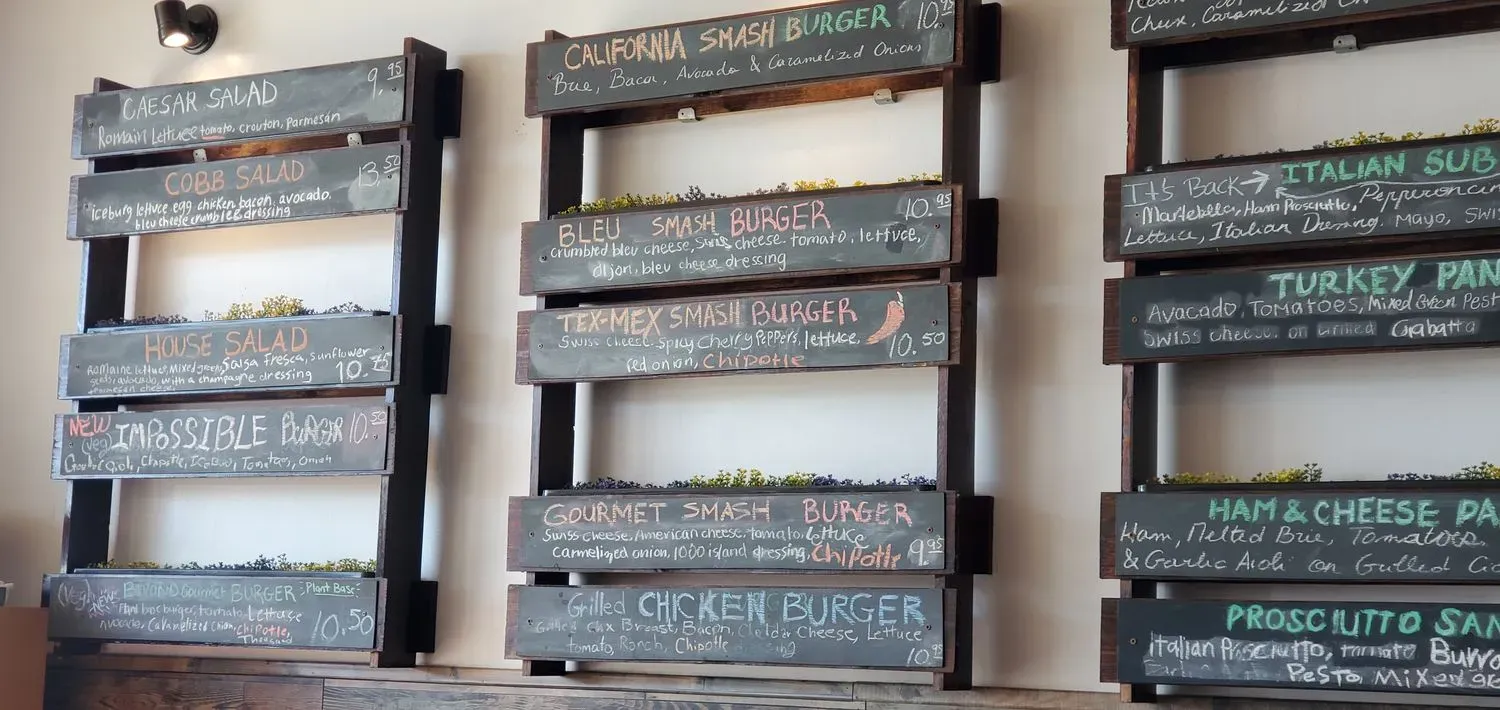 CAESAR SALAD 9.95
Romain Lettuce tomato, crouton, parmesan
COBB SALAD 13.50
iceburg lettuce egg chicken bacon, avocado,
bleu cheese crumbles dressing
HOUSE SALAD
Romaine lettuce, Mixed greens, Salsa fresca, sunflower
seeds, avocado, with a champagne dressing 10.75
parmesan cheese
NEW IMPOSSIBLE BURGER 10.50
(veg)
Chipotle, Iceburg, Tomatoes, Onion
(Veg) BEYOND Gourmet BURGER Plant Base
Plant base burger, tomato, Lettuce
Avocado, Caramelized Onion, CHIPOTLE, 10.50
Thousand
CALIFORNIA SMASH BURGER 10.95
Brie, Bacon, Avocado & Caramelized Onions
BLEU SMASH BURGER 10.95
crumbled bleu cheese, Swiss cheese, tomato, lettuce,
dijon, bleu cheese dressing
TEX-MEX SMASH BURGER
Swiss cheese, spicy cherry PePPers, lettuce, 10.50
red onion, Chipotle
GOURMET SMASH BURGER
Swiss cheese, American cheese, tomato, lettuce
Carmelized onion, 1000 island dressing, Chipotle 9.95
Grilled CHICKEN BURGER
Grilled Chx Breast, Bacon, Cheddar Cheese, Lettuce
tomato, Ranch, Chipotle 10.95
Cheex, Caramelized
It's Back → ITALIAN SUB
Mortadella, Ham Prosciutto, Pepperoncin
Lettuce, Italian Dressing. Mayo, Swi
TURKEY PAN
Avocado, Tomatoes, Mixed Green Pest
Swiss cheese. on Grilled Ciabatta
HAM & CHEESE PA
Ham, Melted Brie, Tomatoes.
& Garlic Aioli on Grilled Ci
PROSCIUTTO SAN
Italian Prosciutto, tomato Burra
Pesto Mixed gr